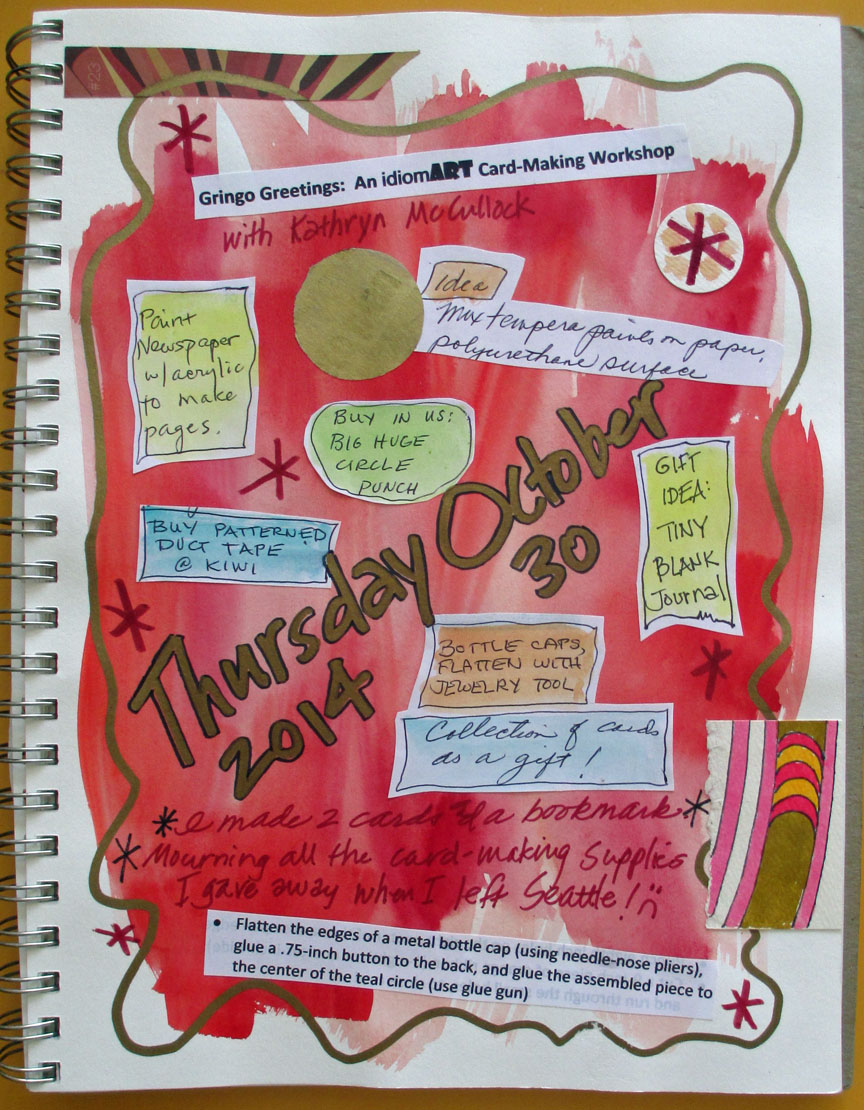 #23
Gringo Greetings: An idiomART Card-Making Workshop
with Kathryn McCullock
Idea
Mix tempera paints on paper,
polyurethane surface
Paint
Newspaper
w/acrylic
to make
pages.
BUY IN US:
BIG HUGE
CIRCLE
PUNCH
GIFT
IDEA:
TINY
BLANK
Journal
BUY PATTERNED
DUCT TAPE
@ KIWI
Thursday October
30
2014
BOTTLE CAPS,
FLATTEN WITH
JEWELRY TOOL
Collection of cards
as a gift!
*I made 2 cards & a bookmark*
*Mourning all the card-making supplies
I gave away when I left Seattle! :(
• Flatten the edges of a metal bottle cap (using needle-nose pliers),
glue a .75-inch button to the back, and glue the assembled piece to
the center of the teal circle (use glue gun)